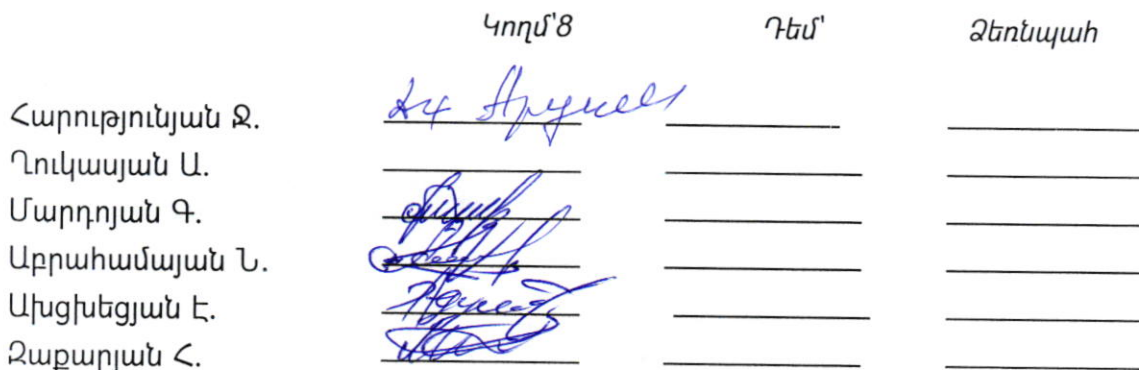 Կողմ՝8 Դեմ՝ Ձեռնպահ
Հարությունյան Ջ.
Ղուկասյան Ա.
Մարդոյան Գ.
Աբրահամայան Ն.
Ախցխեցյան Է.
Զաքարյան Հ.